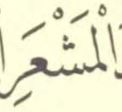 الْمَشْعَرِ